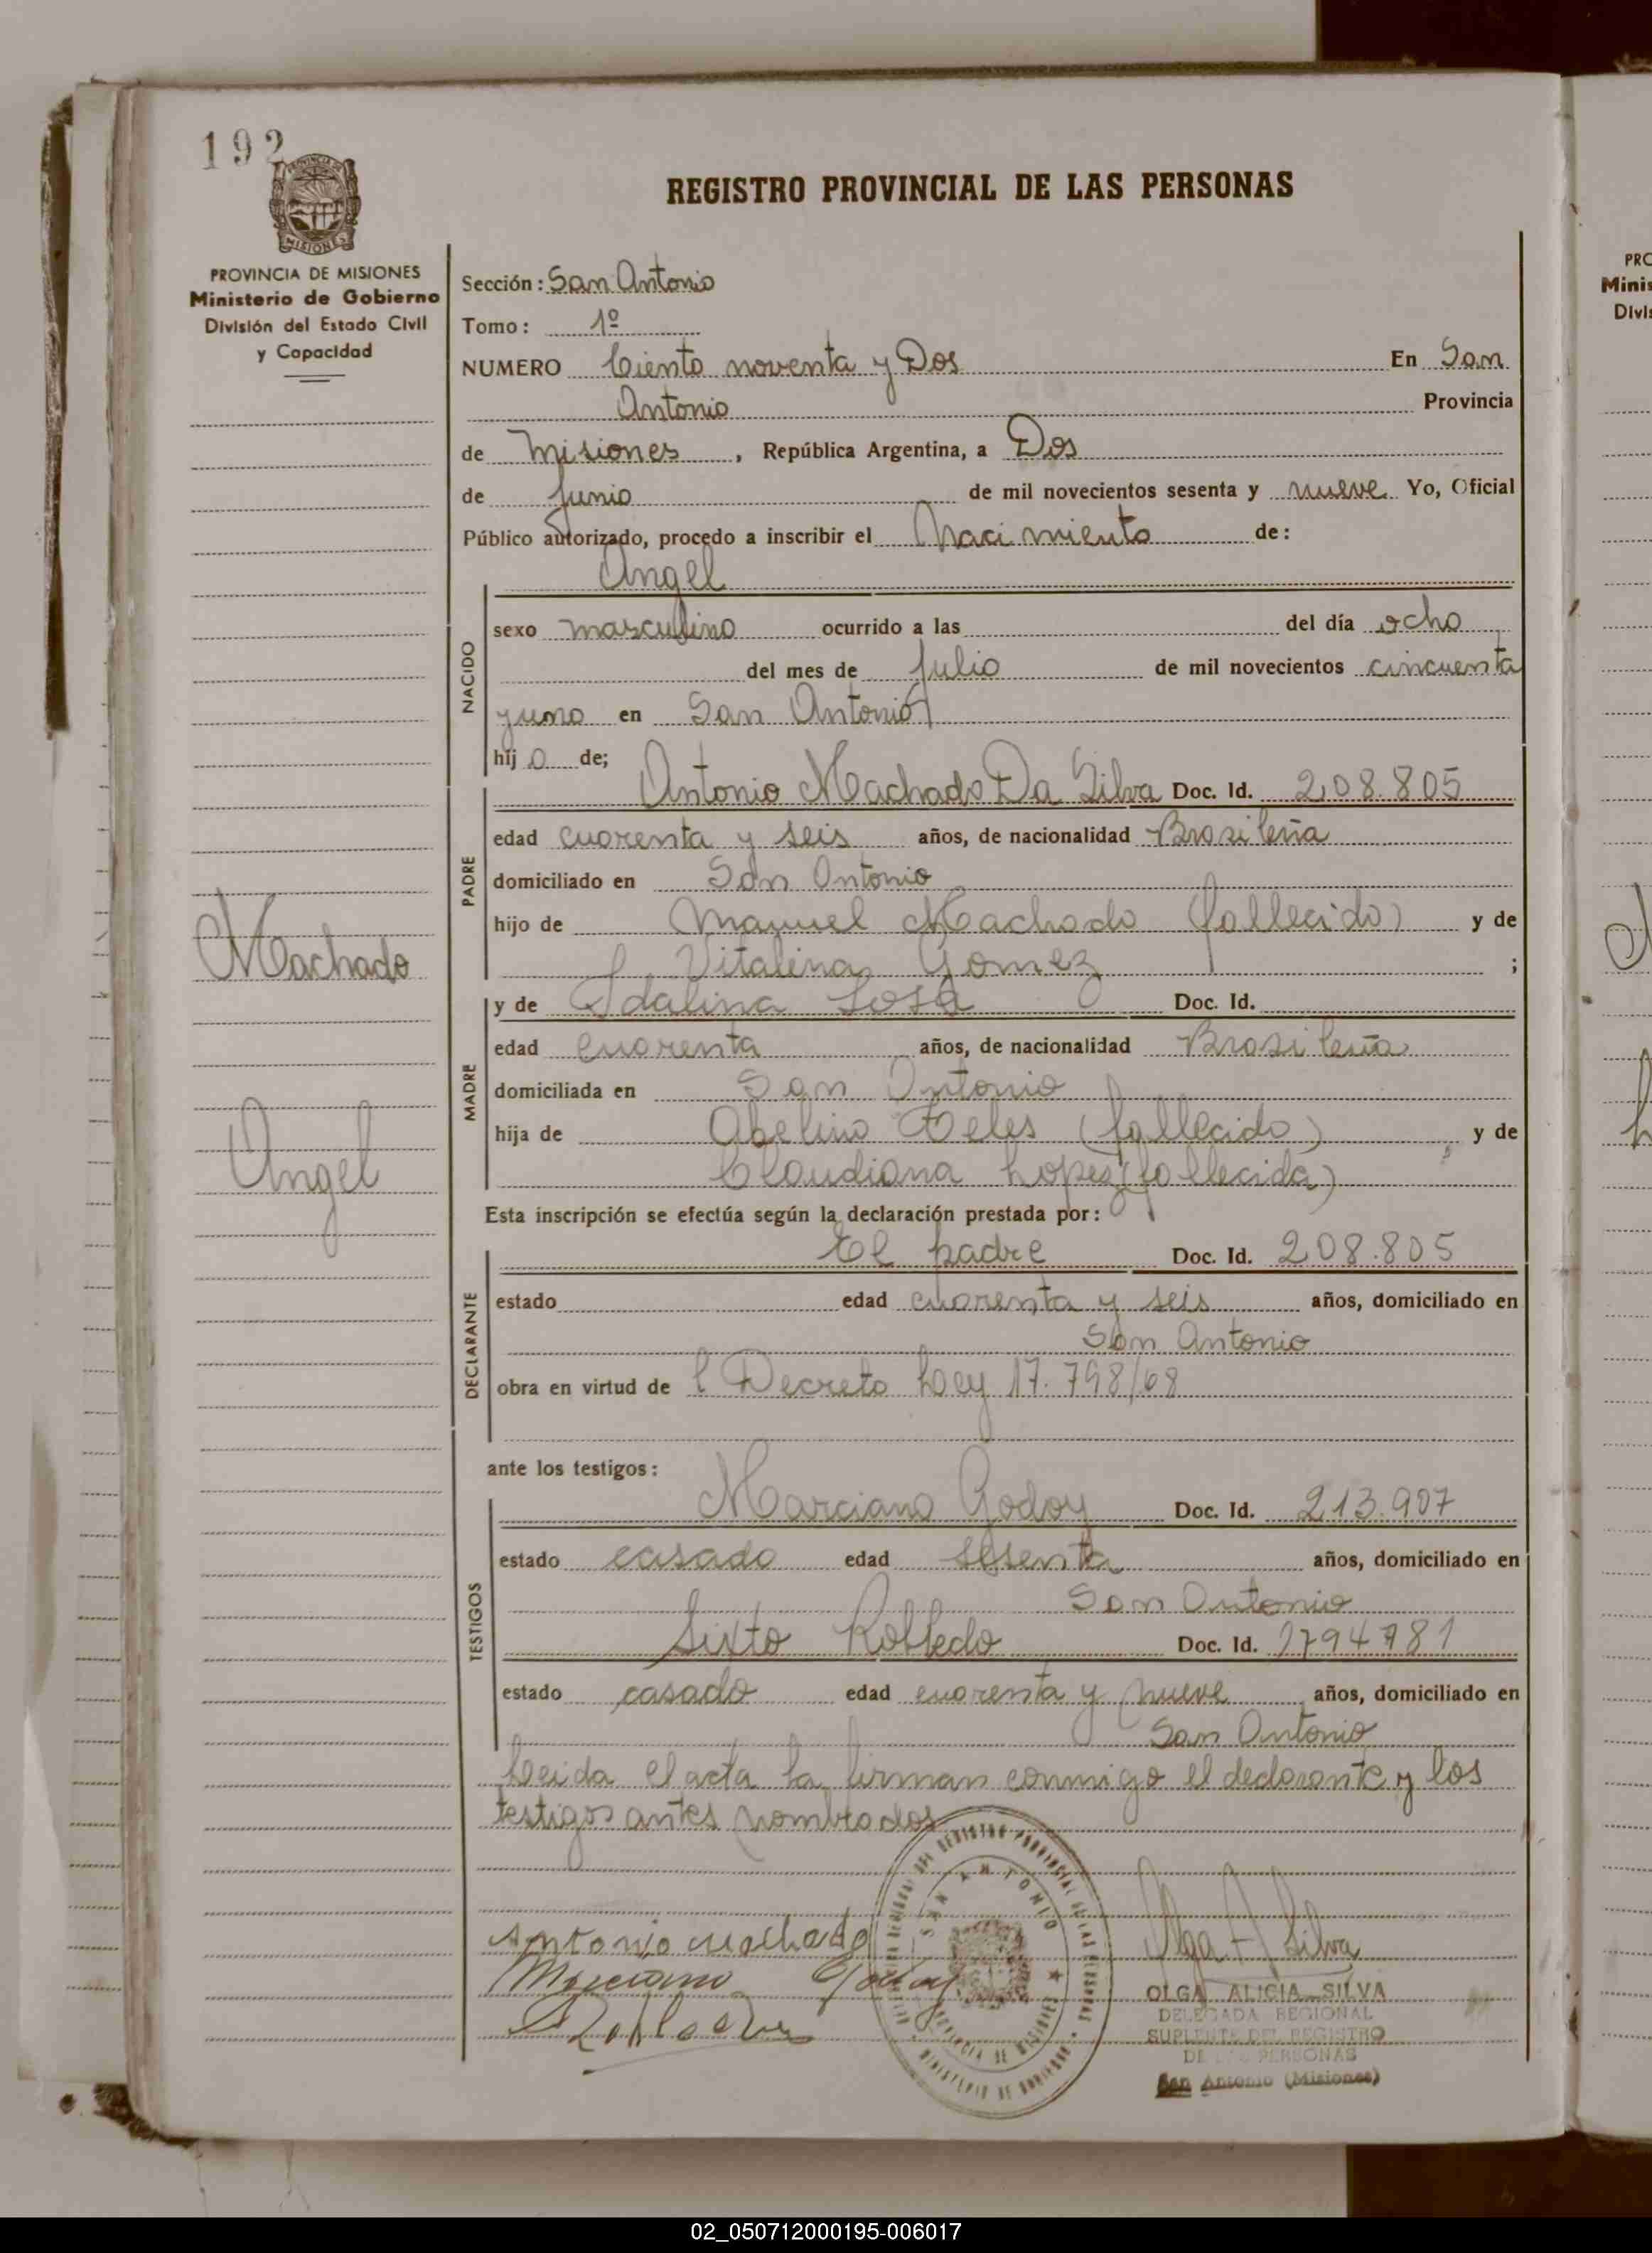 192
PROVINCIA DE MISIONES
Ministerio de Gobierno
División del Estado Civil
y Capacidad
REGISTRO PROVINCIAL DE LAS PERSONAS
Sección: San Antonio
Tomo: 1º
NUMERO Ciento noventa y Dos En San
Antonio Provincia
de Misiones, República Argentina, a Dos
de Junio de mil novecientos sesenta y nueve Yo, Oficial
Público autorizado, procedo a inscribir el Nacimiento de:
Angel
NACIDO
sexo masculino ocurrido a las del día ocho
del mes de Julio de mil novecientos cincuenta
y uno en San Antonio
hij o de;
PADRE
Antonio Machado Da Silva Doc. Id. 208.805
edad cuarenta y seis años, de nacionalidad Brasileña
domiciliado en San Antonio
hijo de Manuel Machado (fallecido) y de
Vitalina Gomez ;
Machado
Angel
MADRE
y de Idalina Sosa Doc. Id.
edad cuarenta años, de nacionalidad Brasileña
domiciliada en San Antonio
hija de Abelino Teles (fallecido) y de
Claudiana Lopez (fallecida)
Esta inscripción se efectúa según la declaración prestada por:
DECLARANTE
El padre Doc. Id. 208.805
estado edad cuarenta y seis años, domiciliado en
San Antonio
obra en virtud de l Decreto Ley 17.798/68
ante los testigos:
TESTIGOS
Marciano Godoy Doc. Id. 213.907
estado casado edad sesenta años, domiciliado en
San Antonio
Sixto Robledo Doc. Id.
estado casado edad cuarenta y nueve años, domiciliado en
San Antonio
Leida el acta la firman conmigo el declarante y los
testigos antes nombrados
SAN ANTONIO
Antonio machado
Marciano Godoy
Robledo
Olga A Silva
OLGA ALICIA SILVA
DELEGADA REGIONAL
SUPLENTE DEL REGISTRO
DE PERSONAS
San Antonio (Misiones)
02_050712000195-006017